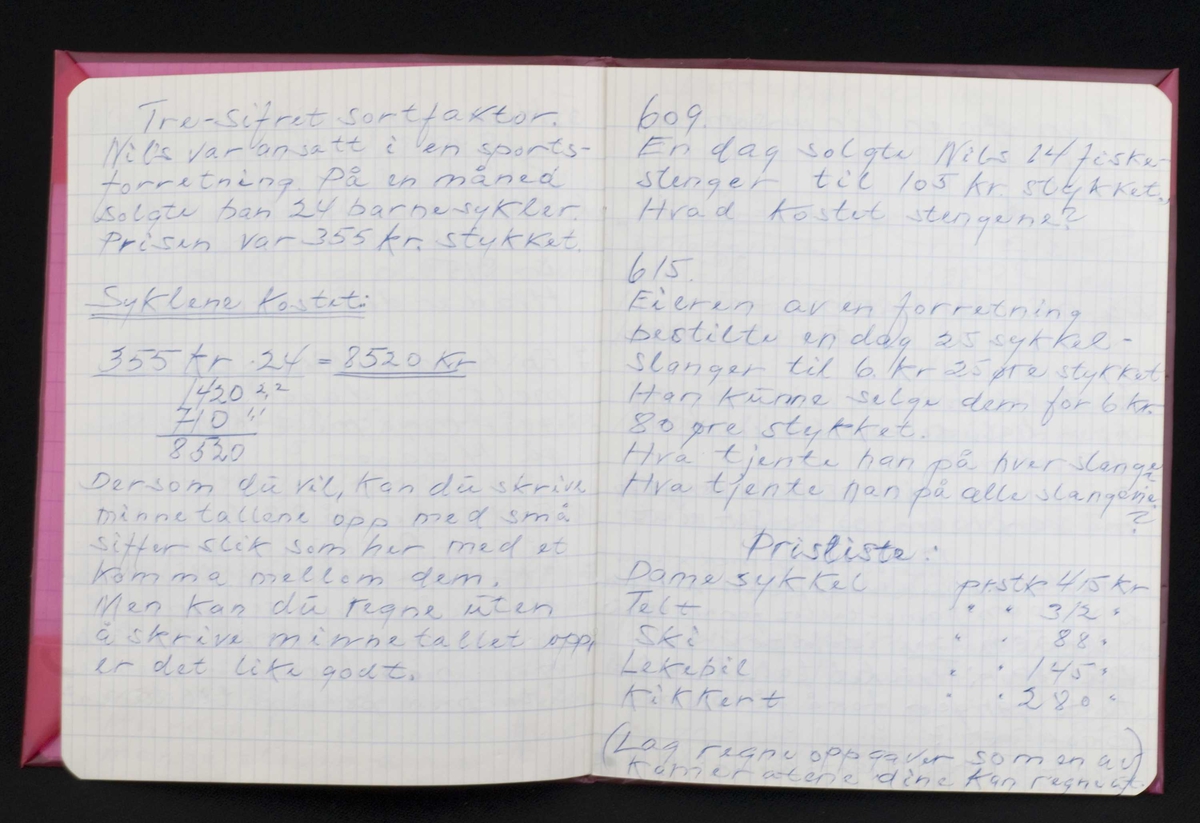 Tre-sifret sortfaktor.
Nils var ansatt i en sports-
forretning. På en måned
solgte han 24 barnesykler.
Prisen var 355 kr. stykket.
Syklene kostet:
355 kr · 24 = 8520 kr
1420 2,2
710 ","
8520
Dersom du vil, kan du skrive
minnetallene opp med små
siffer slik som her med et
komma mellom dem.
Men kan du regne uten
å skrive minnetallet opp,
er det like godt.
609.
En dag solgte Nils 14 fiske-
stenger til 105 kr. stykket.
Hvad kostet stengene?
615.
Eieren av en forretning
bestilte en dag 25 sykkel-
slanger til 6. kr 25 øre stykket
Han kunne selge dem for 6 kr.
80 øre stykket.
Hva tjente han på hver slange
?
Hva tjente han på alle slangene
?
Prisliste:
Damesykkel pr stk 415 kr
Telt " " 312 "
Ski " " 88 "
Lekebil " " 145 "
Kikkert " " 280 "
(Lag regneoppgaver som en av)
kameratene dine kan regne ut.